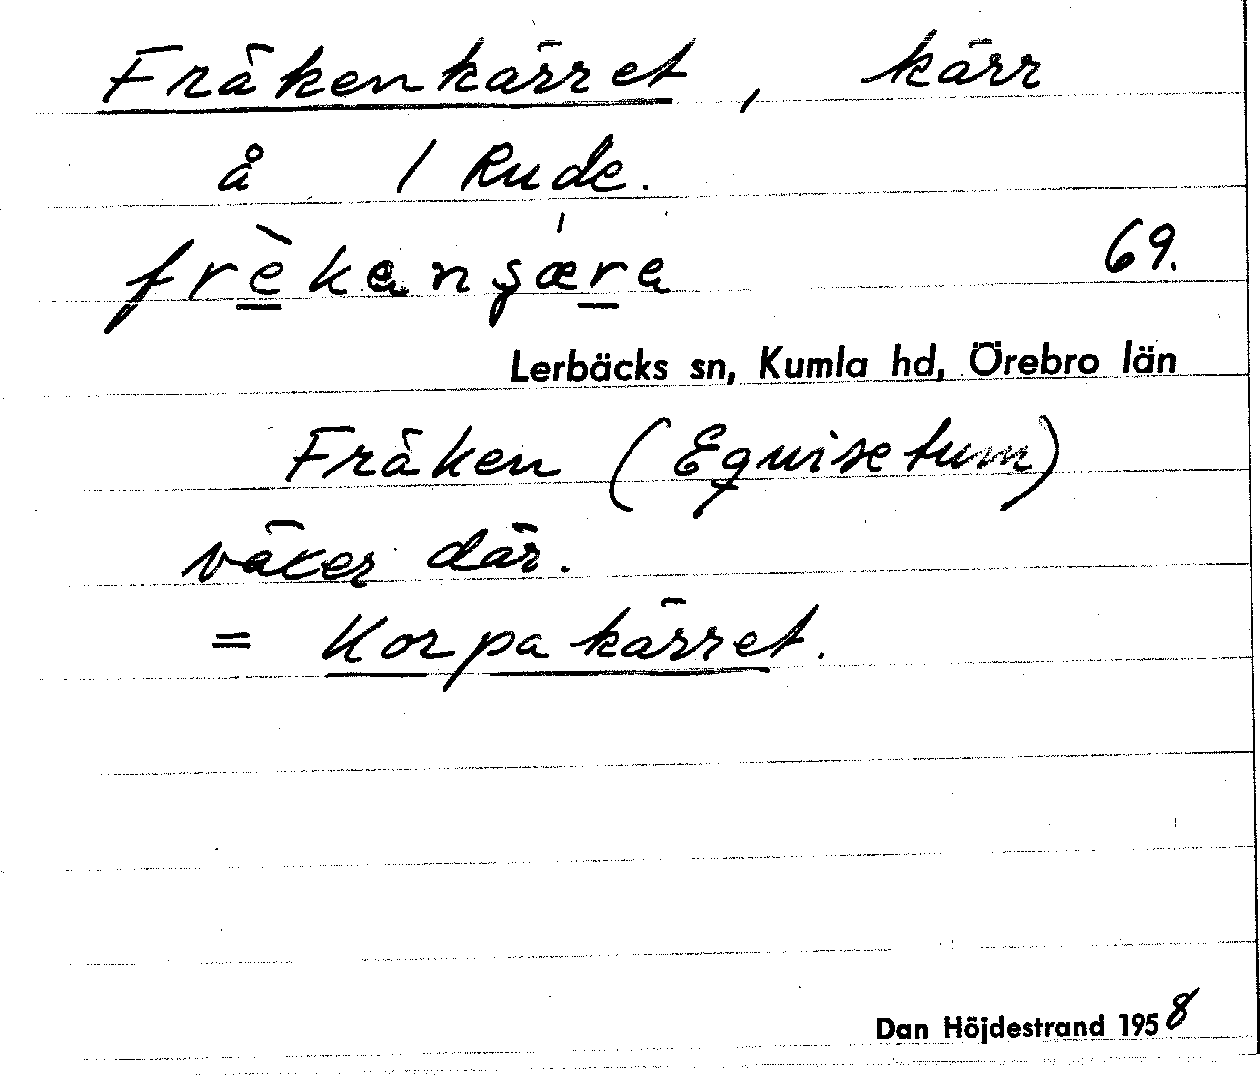 Fräkenkärret, kärr
å 1 Rude.
frèkanʂæ̍ra 69.
Lerbäcks sn, Kumla hd, Örebro län
Fräken (Equisetum)
växer där.
= Korpakärret.
Dan Höjdestrand 1958